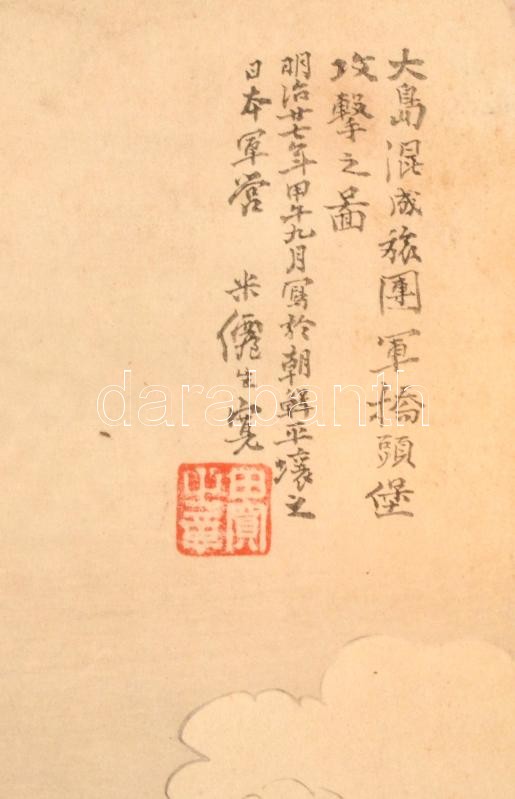 大島混成旅團軍橋頭堡
攻撃之啚
明治廿七年甲午九月寫於朝鮮平壌之
日本軍営 米僊生寛
田寛
之章
darabanth